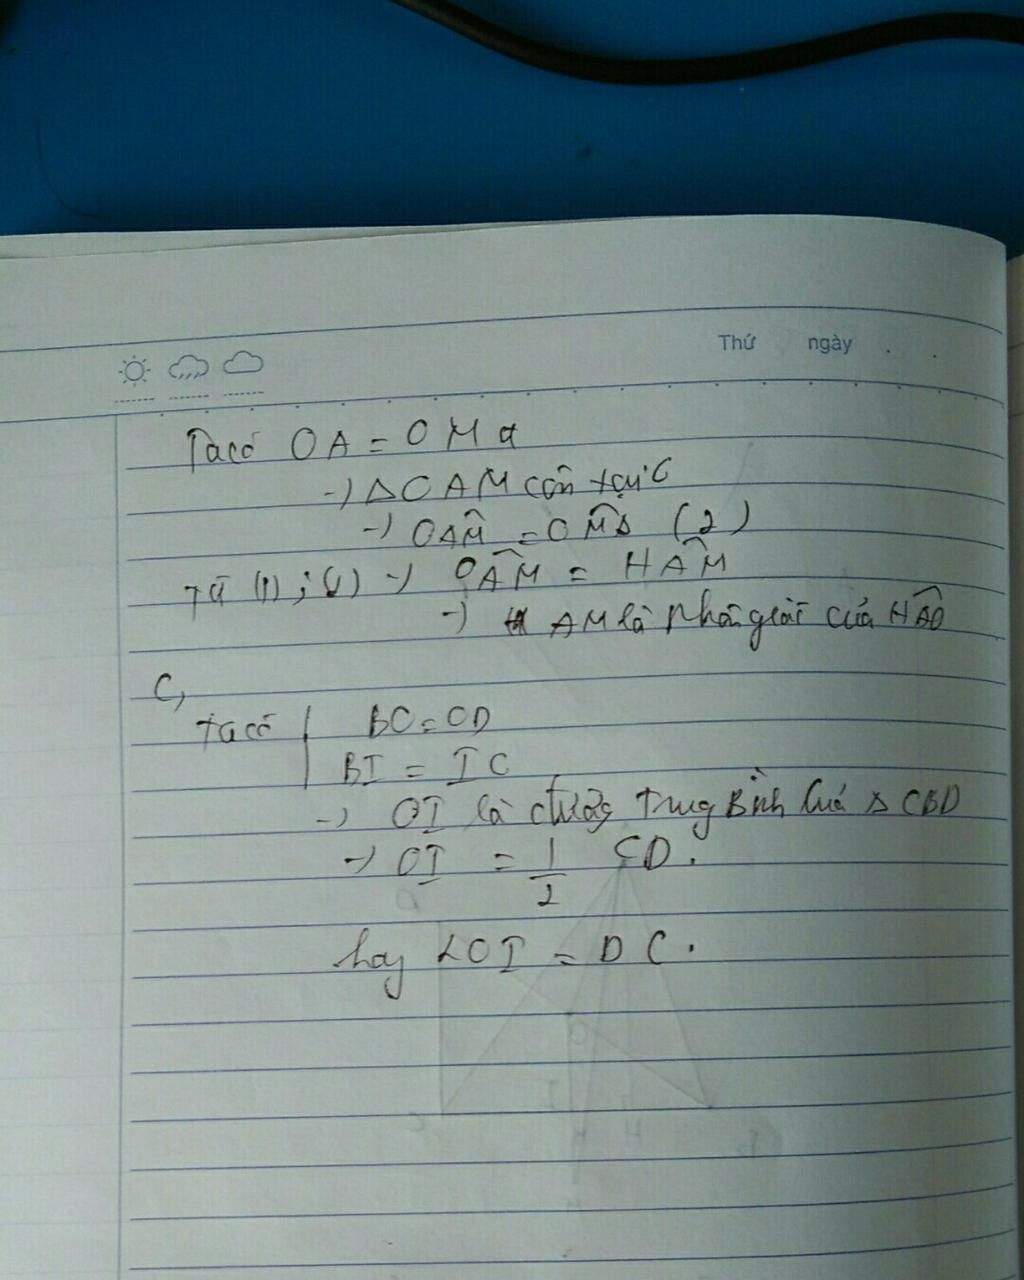 Thứ ngày
Ta có OA = OM
-) ΔOAM cân tại O
-) OAM̂ = OM̂A (2)
Từ (1) ; (2) -) OÂM = HÂM
-) AM là phân giác của HÂO
C,
ta có | BO = OD
| BI = IC
-) OI là đường trung Bình Của Δ CBD
-) OI = 1/2 CD.
hay 2OI = DC.